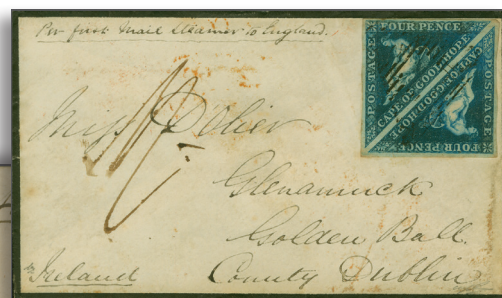 Per first Mail Steamer to England.
FOUR PENCE
POSTAGE
CAPE OF GOOD HOPE
CAPE OF GOOD HOPE
POSTAGE
FOUR PENCE
Miss Olivier
Glenamuck
Golden Ball.
Ireland
County Dublin